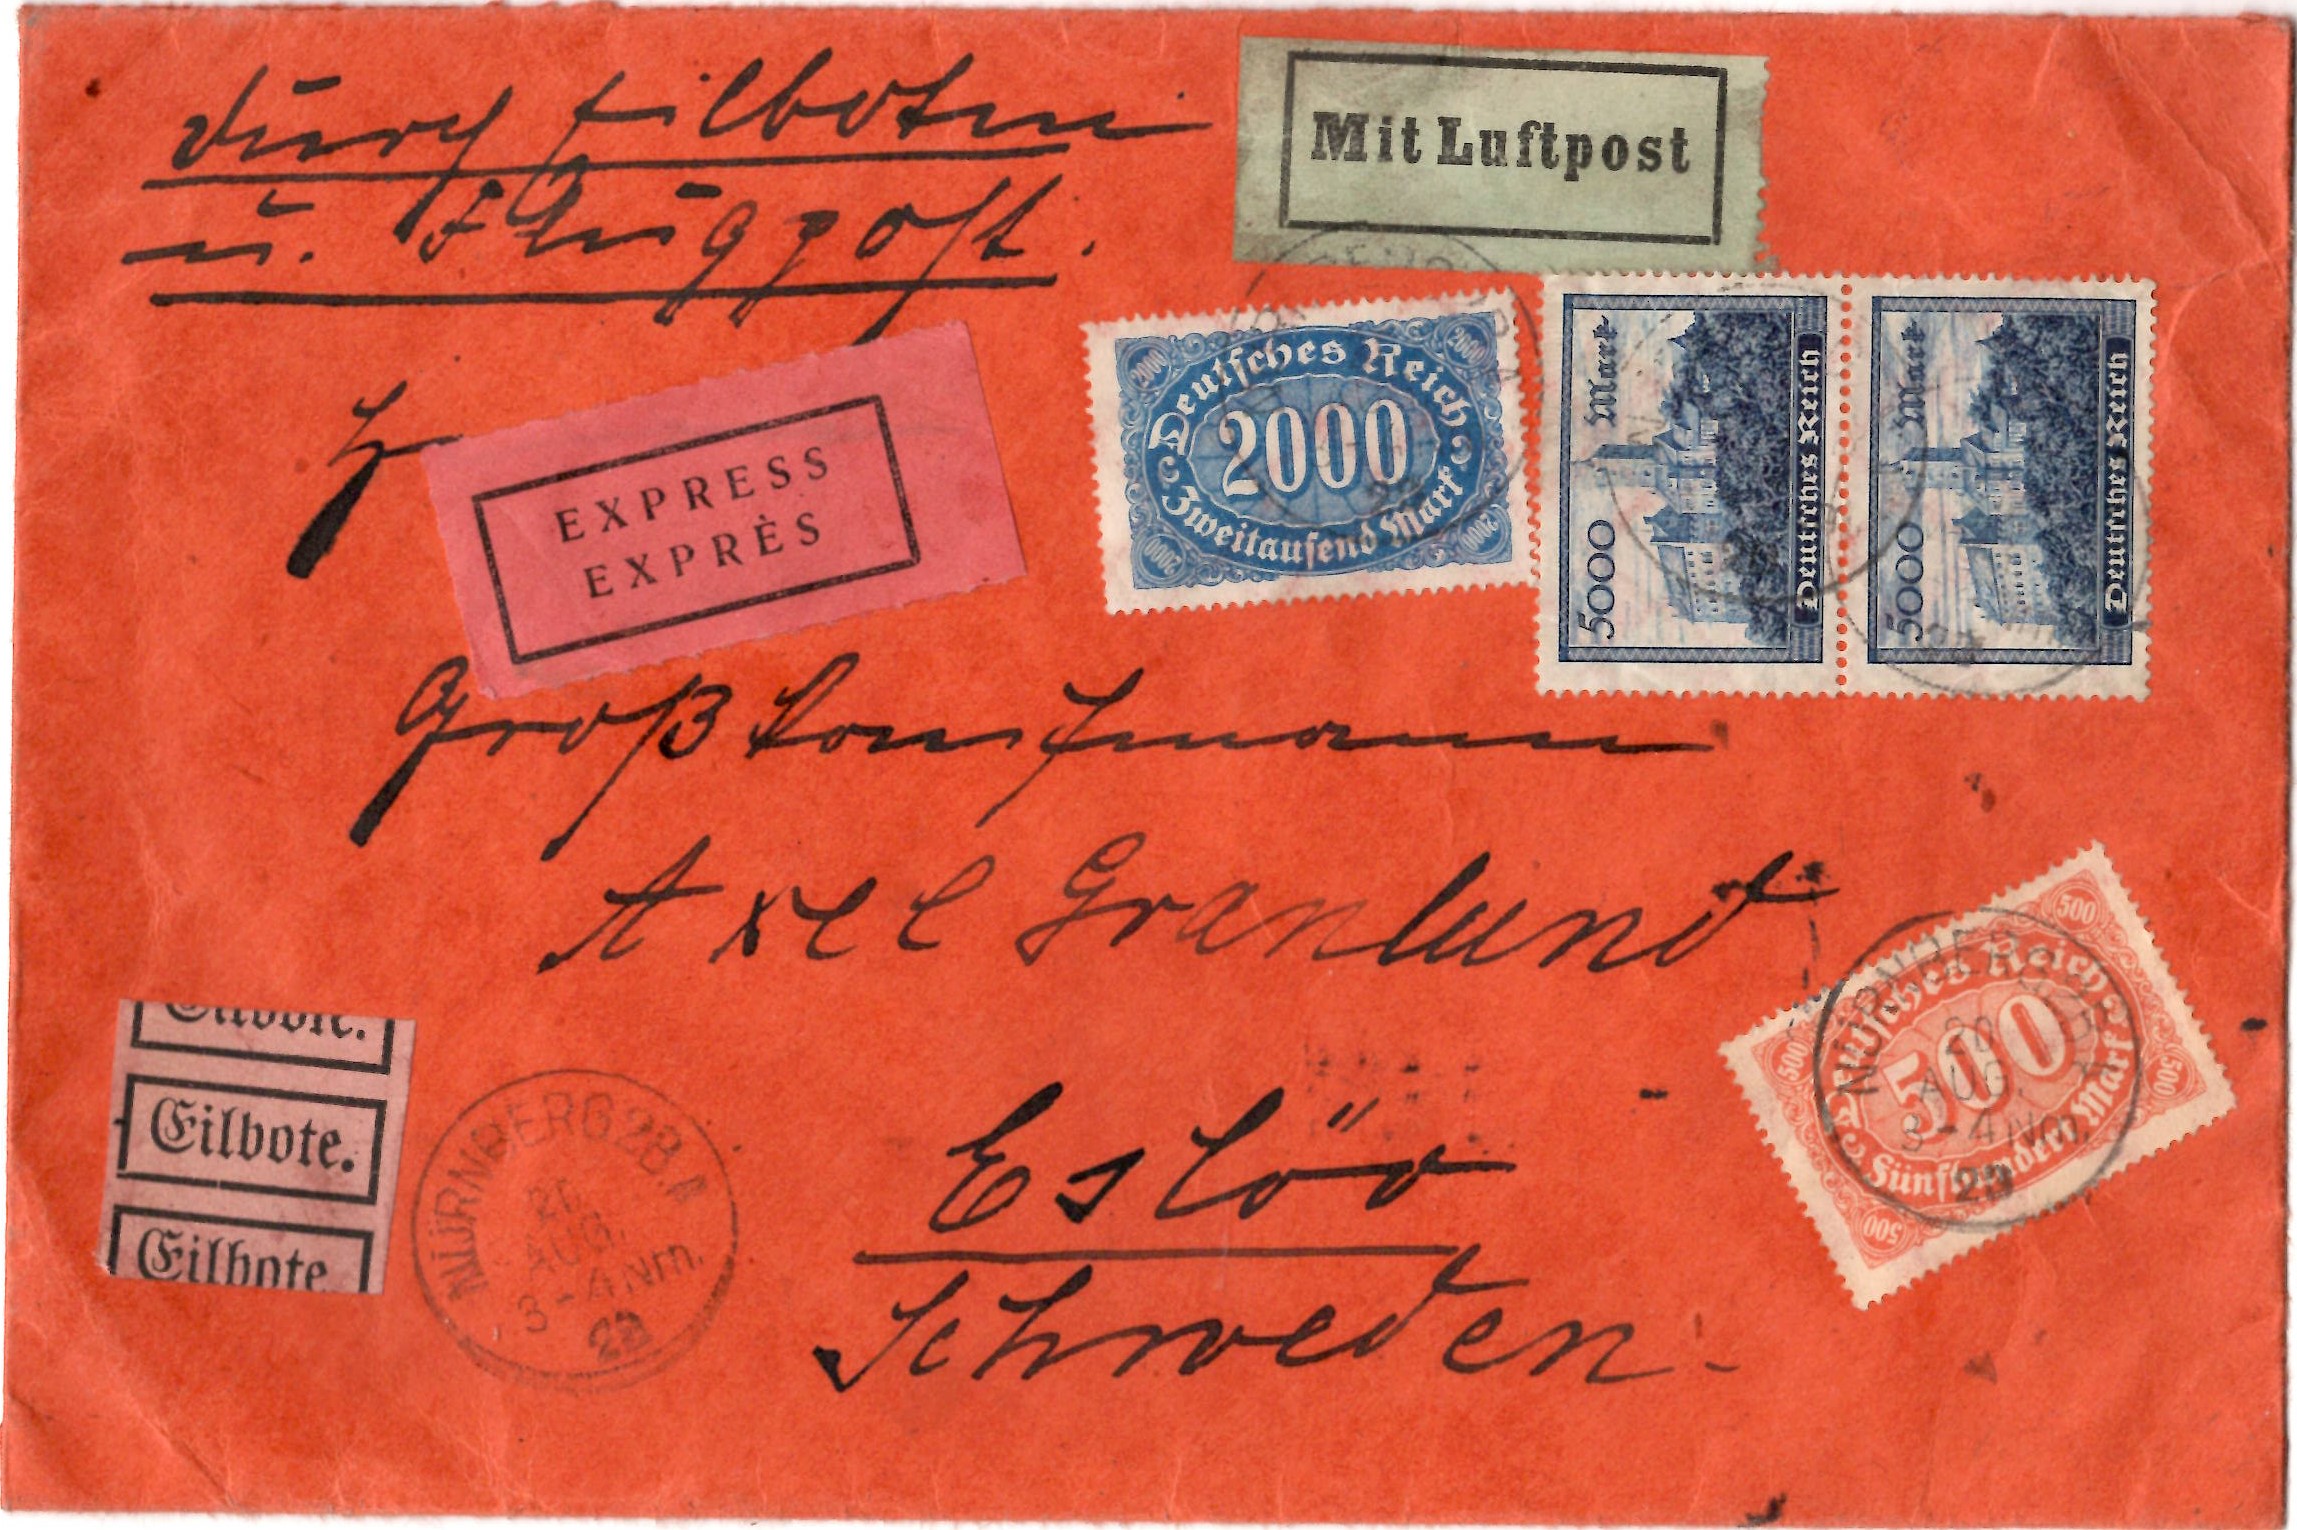 durch Eilboten
u. Flugpost.
Mit Luftpost
H
EXPRESS
EXPRÈS
2000 2000
Deutsches Reich
2000
Zweitausend Mark
2000 2000
5000 Mark
Deutsches Reich
5000 Mark
Deutsches Reich
Großkaufmann
Axel Granlund
500 500
Deutsches Reich
500
Fünfhundert Mark
500 500
NÜRNBERG
20
AUG.
3-4 Nm.
23
Eilbote.
Eilbote.
Eilbote
NÜRNBERG 2 B.P.
20
AUG.
3-4 Nm.
23
Eslöv
Schweden